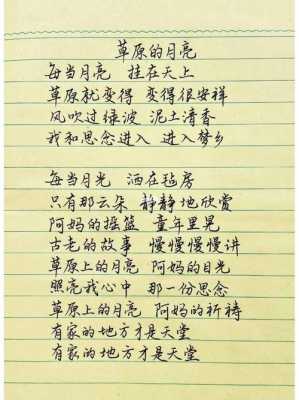 草原的月亮
每当月亮 挂在天上
草原就变得 变得很安祥
风吹过绿波 泥土清香
我和思念进入 进入梦乡
每当月光 洒在毡房
只有那云朵 静静地欣赏
阿妈的摇篮 童年里晃
古老的故事 慢慢慢慢讲
草原上的月亮 阿妈的目光
照亮我心中 那一份思念
草原上的月亮 阿妈的祈祷
有家的地方才是天堂
有家的地方才是天堂